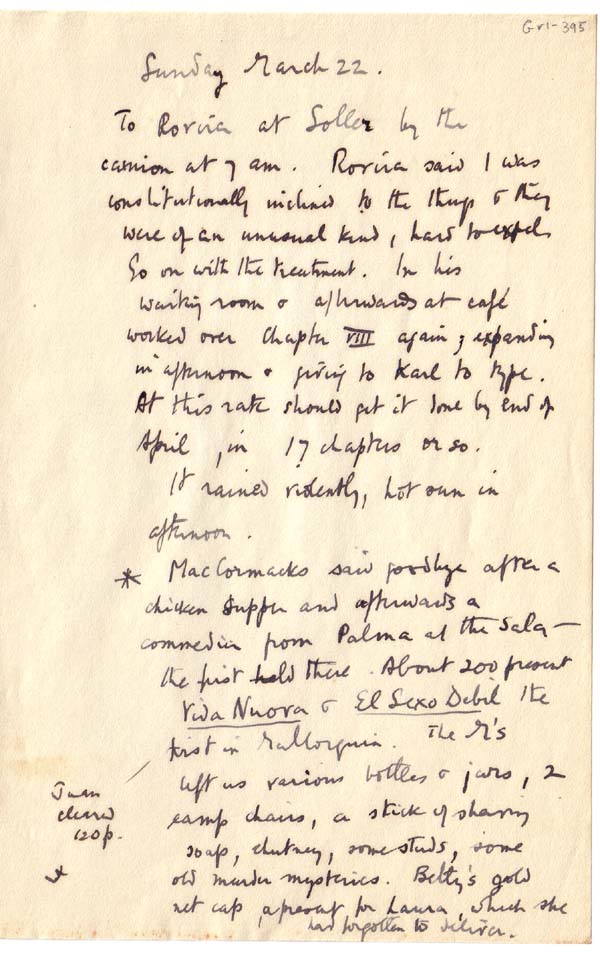 Gr1-395
Sunday March 22.
To Rovira at Soller by the
camion at 7 am. Rovira said I was
constitutionally inclined to the things & they
were of an unusual kind, hard to expel.
Go on with the treatment. In his
waiting room & afterwards at café
worked over Chapter VIII again; expanding
in afternoon & giving to Karl to type.
At this rate should get it done by end of
April, in 17 chapters or so.
It rained violently, hot sun in
afternoon.
* MacCormacks said goodbye after a
chicken supper and afterwards a
commedia from Palma at the Sala –
the first held there. About 200 present
Vida Nuova & El Sexo Debil the
first in Mallorquin. The M's
left us various bottles & jars, 2
camp chairs, a stick of shaving
soap, chutney, some studs, some
old murder mysteries. Betty's gold
net cap, a present for Laura, which she
had forgotten to deliver.
Juan
cleared
120p.